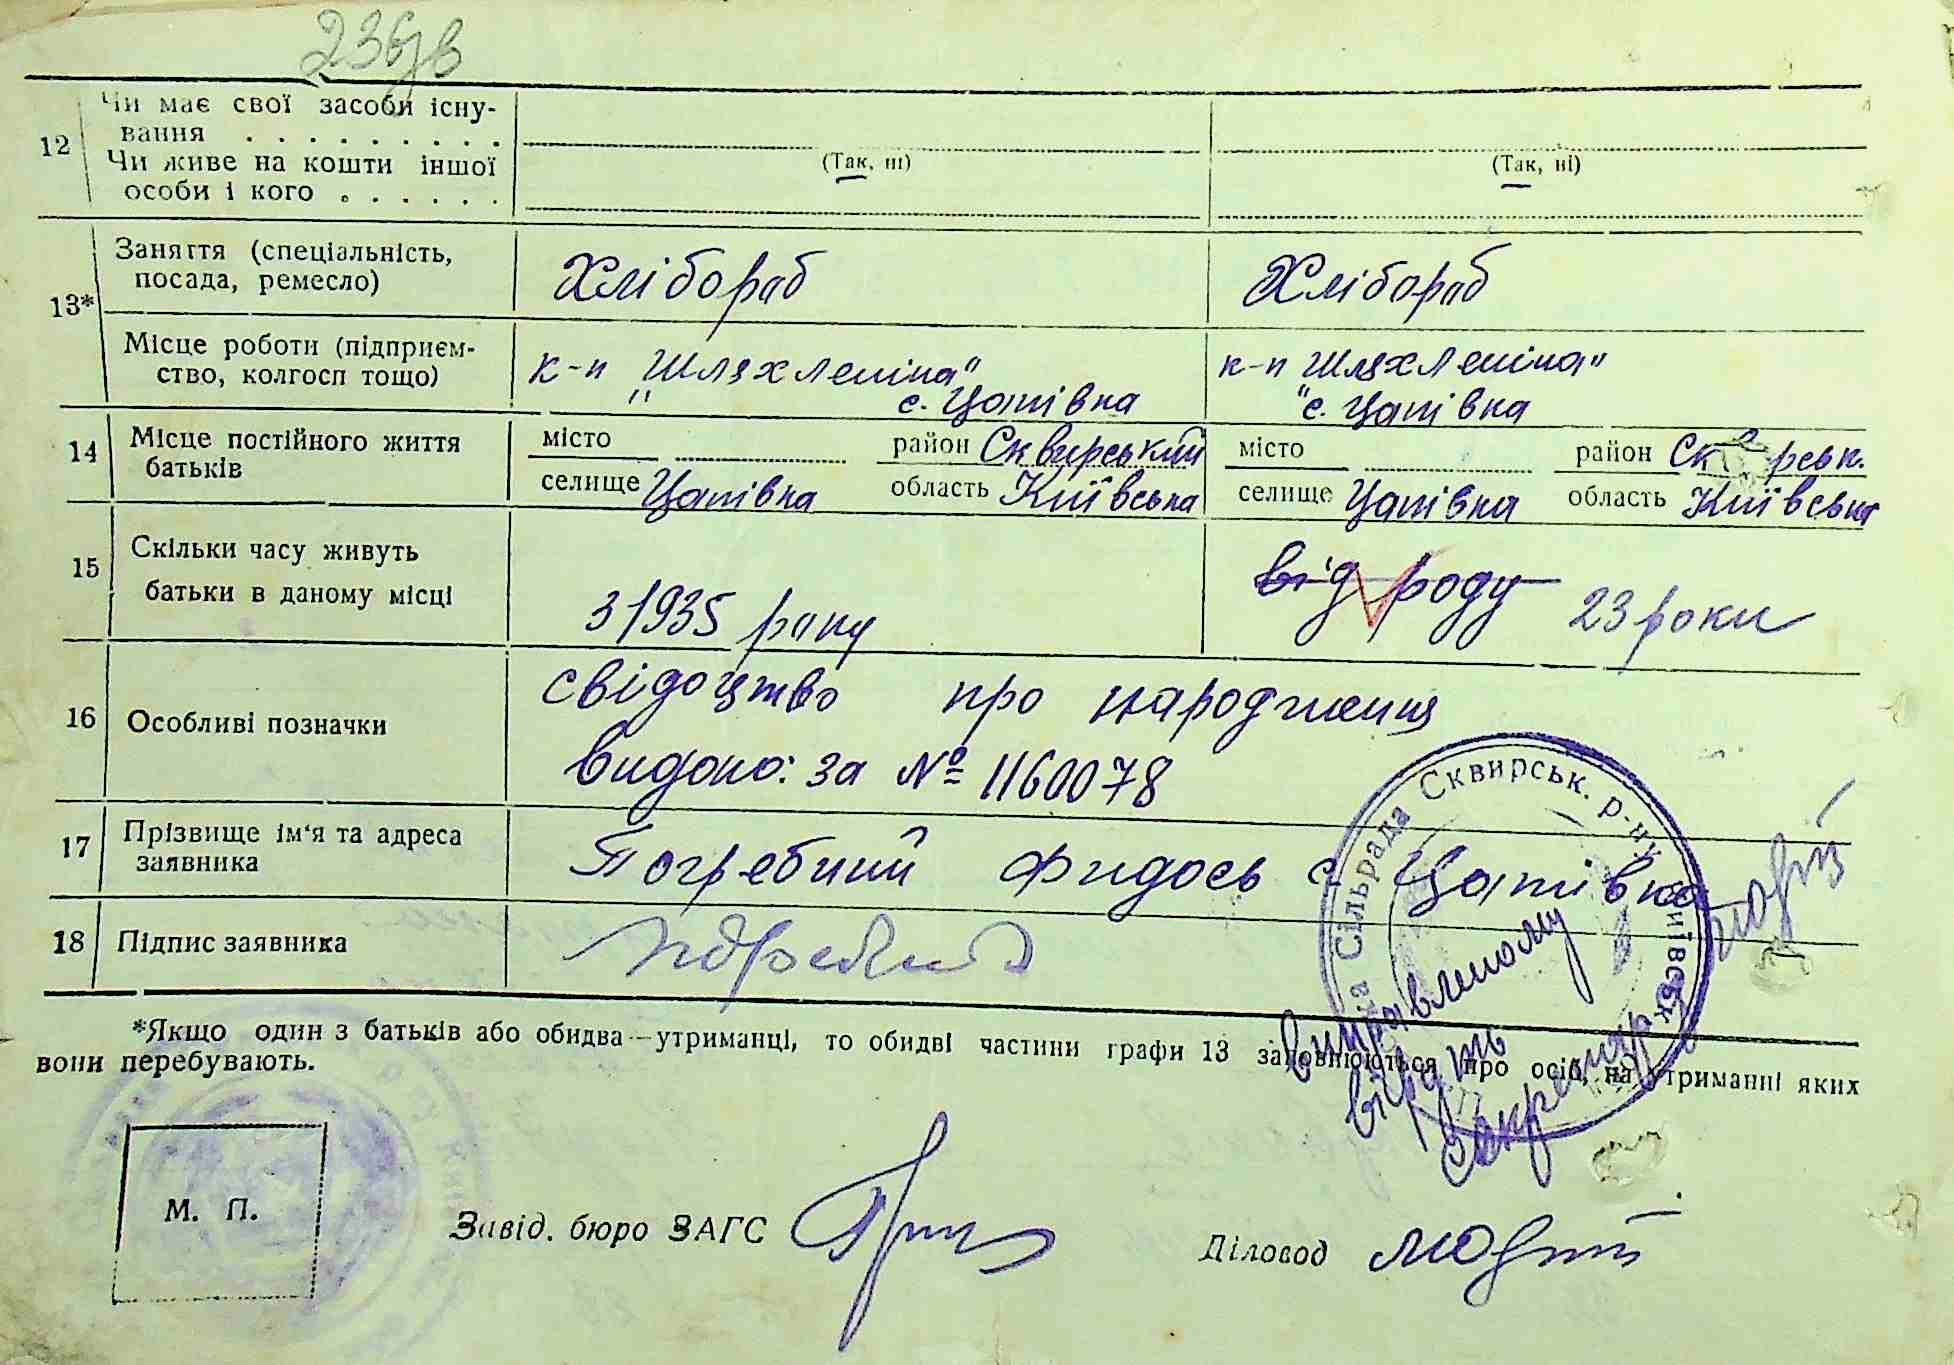 236зв
12
Чи має свої засоби існу-
вання . . . . . . . . .
Чи живе на кошти іншої
особи і кого . . . . . .
(Так, ні)
(Так, ні)
13*
Заняття (спеціальність,
посада, ремесло)
Хлібораб
Хлібораб
Місце роботи (підприєм-
ство, колгосп тощо)
к-п "Шлях Леніна"
с. Цапівка
к-п "Шлях Леніна"
с. Цапівка
14
Місце постійного життя
батьків
місто район Сквирський
селище Цапівка область Київська
місто район Сквирськ.
селище Цапівка область Київська
15
Скільки часу живуть
батьки в даному місці
з 1935 року
від роду 23 роки
16
Особливі позначки
свідоцтво про народження
видано: за № 1160078
17
Прізвище ім'я та адреса
заявника
Погребний Фидось с Цапівка
18
Підпис заявника
*Якщо один з батьків або обидва—утриманці, то обидві частини графи 13 заповнюються про осіб, на утриманні яких
вони перебувають.
Сільрада Сквирськ. р-ну Київськ
виправленому
вірить
Секретар
М. П.
Завід. бюро ЗАГС
Діловод